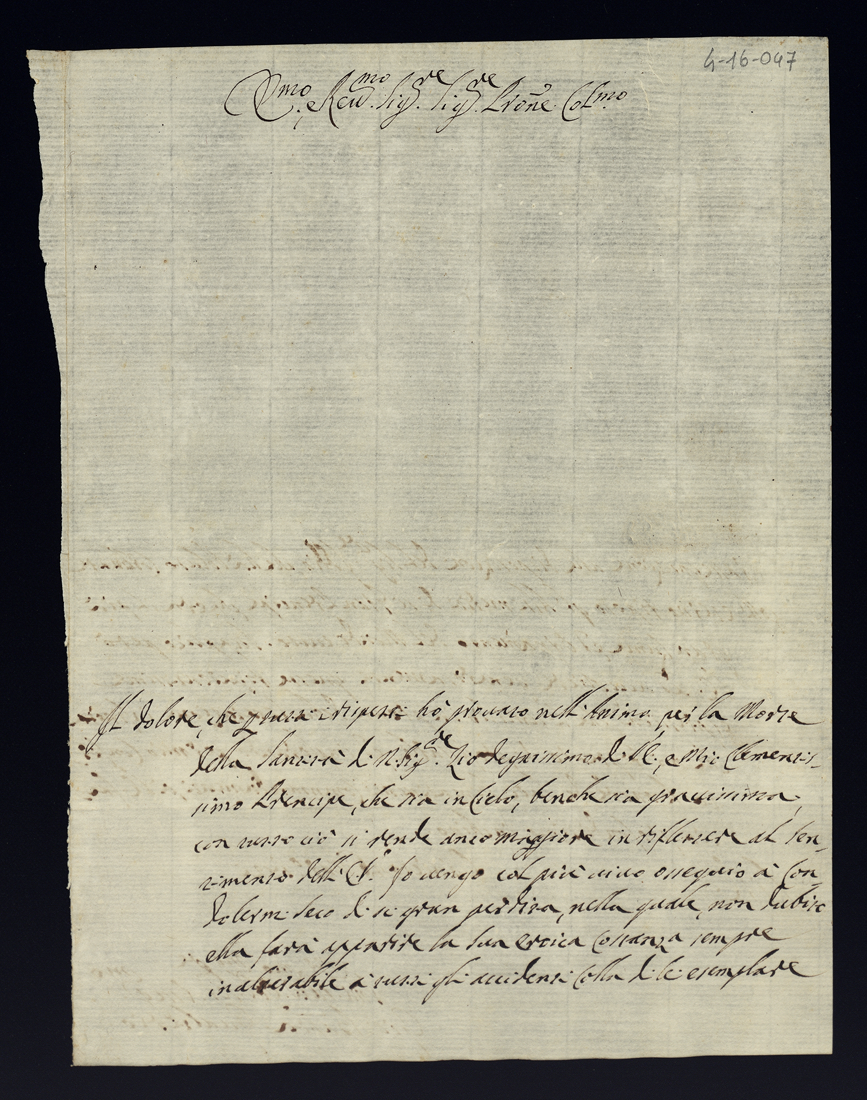 4-16-047
Em.mo, e Rev.mo Sig.re Sig.re Prone Col.mo
Il dolore, che p tutti i rispetti hò provato nell'Anima per la Morte
della Santità di N. Sig.re Zio degnissimo di V.E., e Mio Clementis-
simo Prencipe, che sia in Cielo, benche sia gravissimo,
con tutto ciò si rende anco maggiore in riflettere al sen-
timento dell' E.V. Io vengo col più vivo ossequio à Con-
dolermi seco di si gran perdita, nella quale, non dubito
ella farà apparire la sua eroica Costanza sempre
inalterabile à tutti gli accidenti colla di lei esemplare